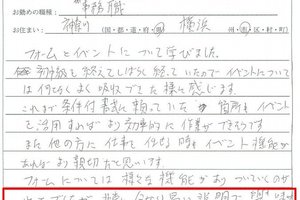 お勤めの職種: 事務職
お住まい: 神奈川(国・都・道・府・県) 横浜(州・市・区・村・町)
フォームとイベントについて学びました。
初級を終えてしばらく経っていたのでイベントについては
何となくよく吸収できた様に感じます。
これまで条件付書式に頼っていた箇所もイベント
を活用すればより効率的に作業ができそうです
また他の方に仕事を任す時イベント機能が
あればより親切だと思います。
フォームについては様々な機能がありついていくのが